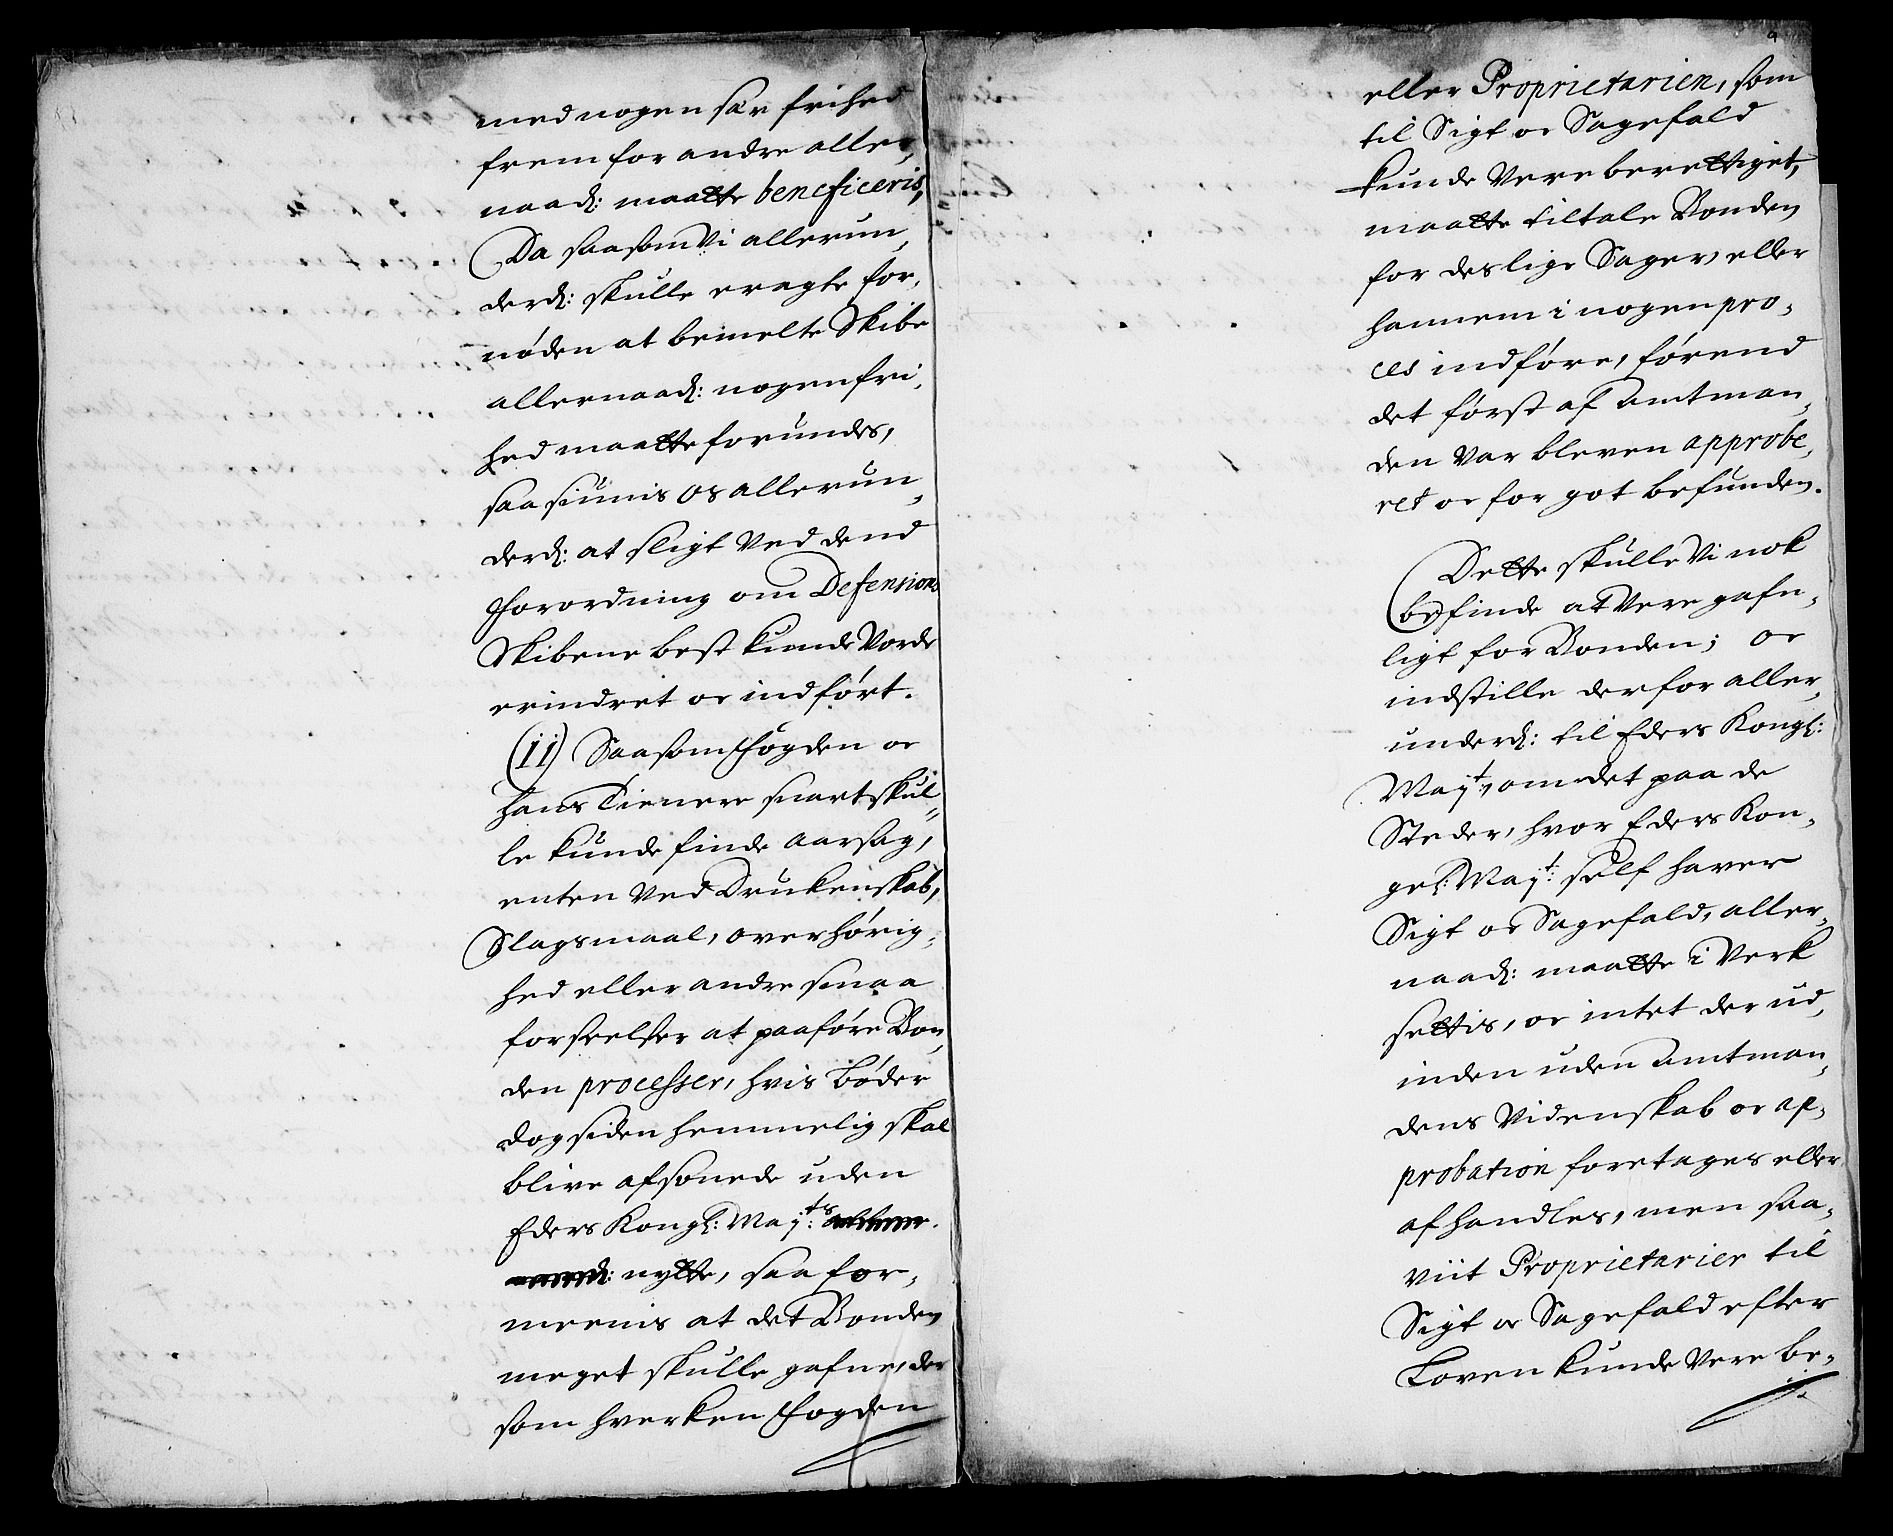 med nogen sær frihed
frem for andre aller,
naadl: maatte beneficeris,
Da saasom Vi allerun,
derdl: skulle eragte for,
nøden at bemelte Skibe
allernaadl: nogen fri,
hed maatte forundes,
saa siunis os allerun,
derdl: at sligt Ved dend
Forordning om Defensions
Skibene best kunde Vorde
erindret oc indført.
(11) Saasom Fogden oc
hans Tienere snart skul,,
le kunde finde aarsag,
enten Ved Drukenskab,
Slagsmaal, overhørig,
hed eller andre smaa
forseelser at paaføre Bon,
den processer, hvis bøder
dog siden hemmelig skal
blive afsonede uden
Eders Kongl: Maj:ts
nytte, saa for,
meenis at det Bonden
meget skulle gafne, der
som hverken Fogden
9
eller Proprietarien, som
til Sigt oc Sagefald
kunde Vere berettiget,
maatte tiltale Bonden
for deslige Sager, eller
hannem i nogen pro,
ces indføre, førend
det først af Amtman,
den Var bleven approbe,
ret oc for got befunden.
Dette skulle Vi nok
(be)finde at Vere gafn,
ligt for Bonden; oc
indstille derfor aller,
underdl: til Eders Kongl:
Maj:t, om det paa de
Steder, hvor Eders Kon,
gel: Maj:t self haver
Sigt oc Sagefald, aller,
naadl: maatte i Verk
settis, oc intet der ud,
inden uden Amtman,
dens Videnskab oc ap,
probation foretages eller
afhandles, men saa,
viit Proprietarier til
Sigt oc Sagefald efter
Loven kunde Vere be,